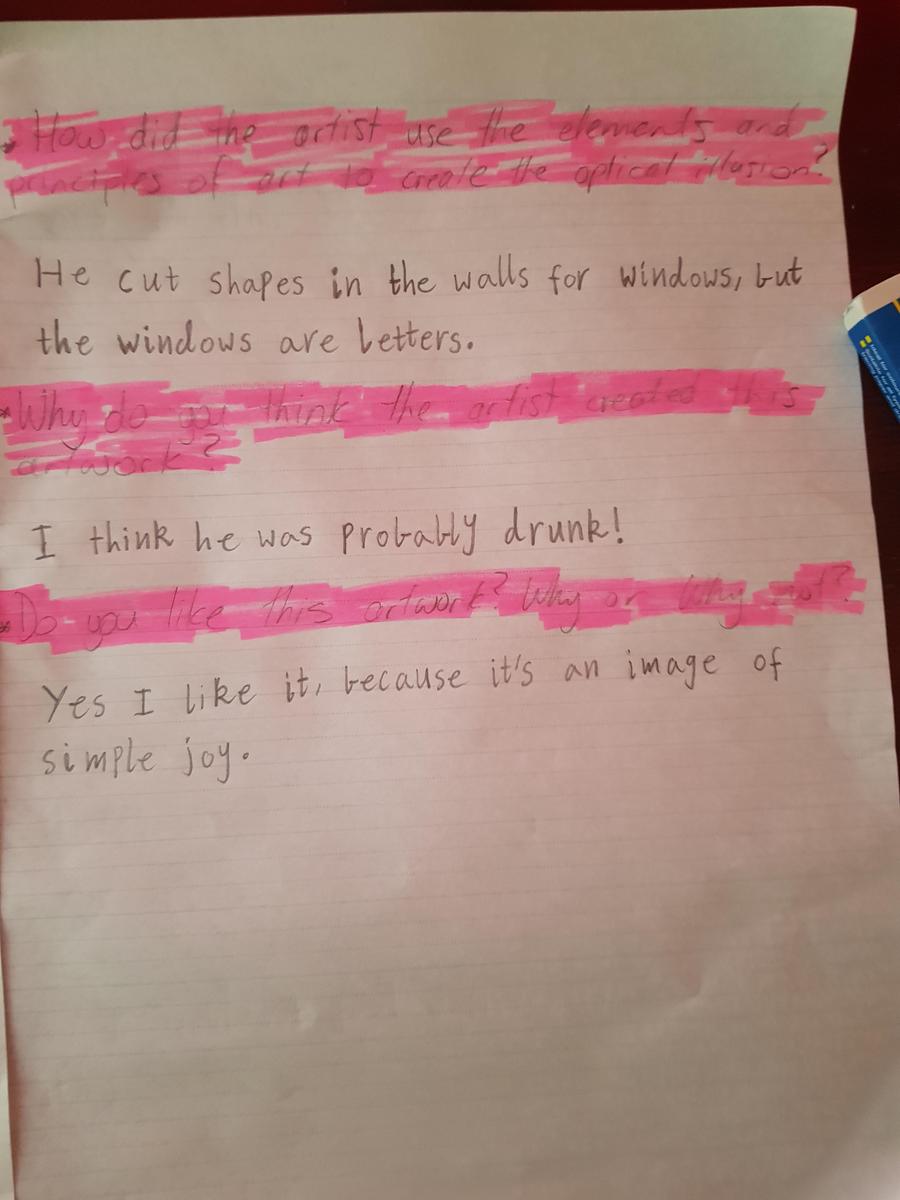 * How did the artist use the elements and
principles of art to create the optical illusion?
He cut shapes in the walls for windows, but
the windows are letters.
* Why do you think the artist created this
artwork?
I think he was probably drunk!
* Do you like this artwork? Why or Why not?
Yes I like it, because it's an image of
simple joy.